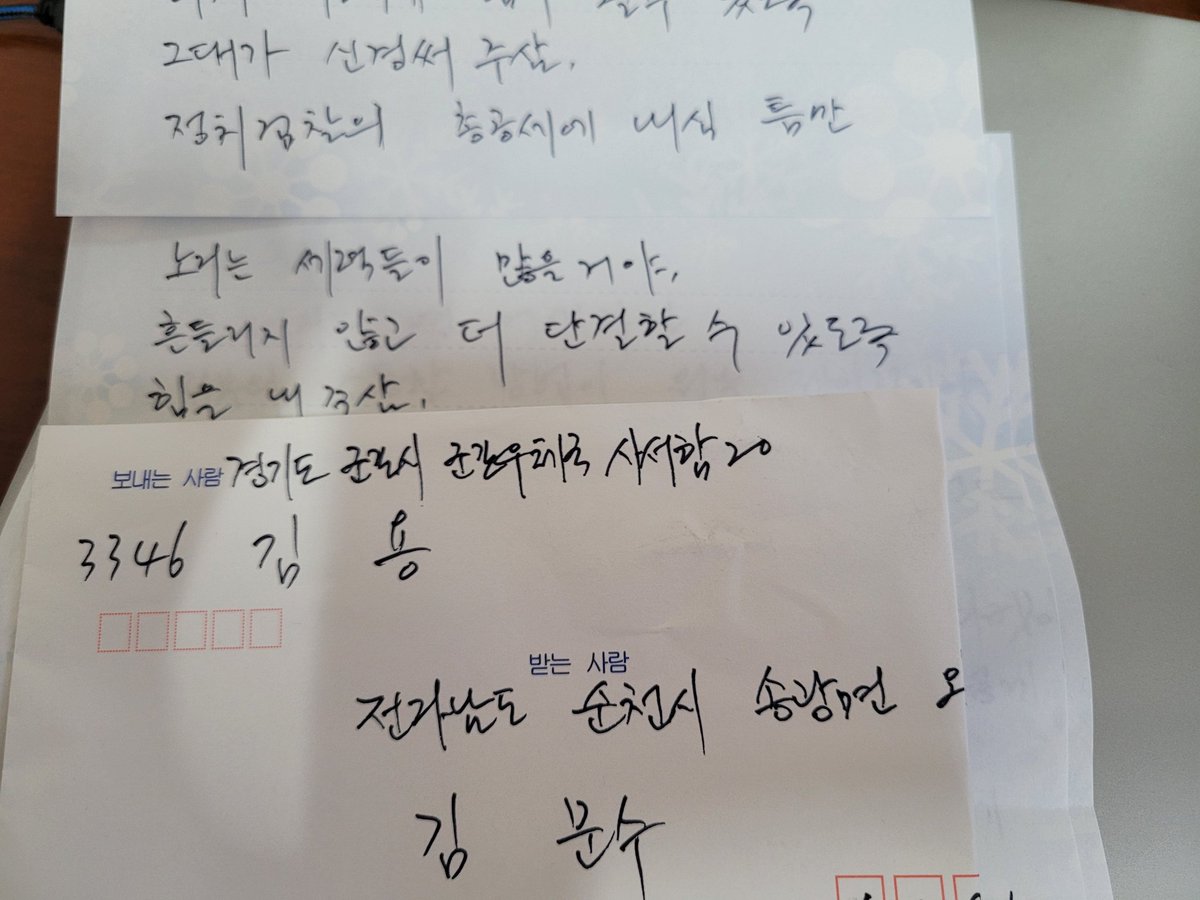 있도록
그대가 신경써 주삼.
정치검찰의 총공세에 내식 틈만
노리는 세력들이 많을거야.
흔들리지 않고 더 단결할 수 있도록
힘을 내 주삼.
보내는 사람 경기도 군포시 군포우체국 사서함 20
3346 김 용
받는 사람
전라남도 순천시 송광면
김 문수